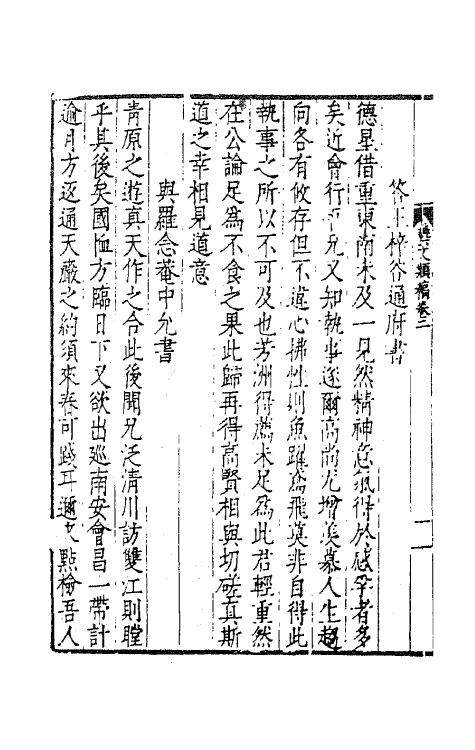 答王梓谷通府書
德星借重東南未及一見然精神意氣得於感孚者多
矣近會行兄又知執事遂爾高尚尤增羨慕人生趨
向各有攸存但不違心拂性則魚躍鳶飛莫非自得此
執事之所以不可及也芳洲得薦未足為此君輕重然
在公論足為不食之果此歸再得高賢相與切磋真斯
道之幸相見道意
與羅念菴中允書
青原之遊真天作之合此後聞兄泛清川訪雙江則瞠
乎其後矣國恤方臨日下又欲出巡南安會昌一帶計
逾月方返通天巖之約須來春可踐耳邇點檢吾人
類稿卷三